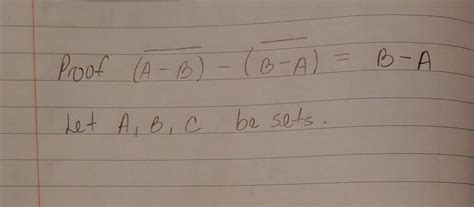 Proof $\overline{(A - B)} - \overline{(B - A)} = B - A$
Let A, B, C be sets.